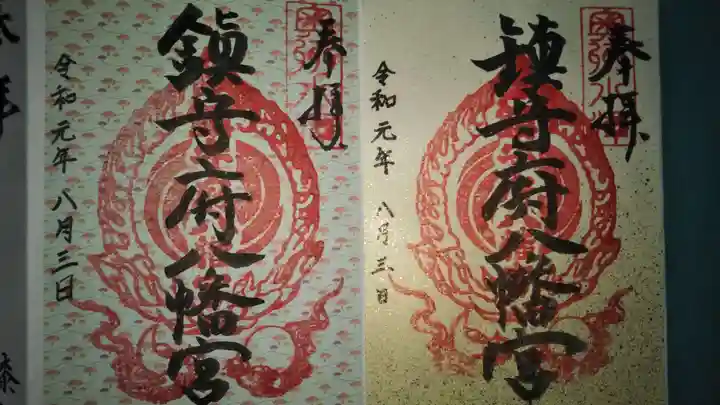 奉拝
鎮守府八幡宮
令和元年八月三日
奉拝
鎮守府八幡宮
令和元年八月三日